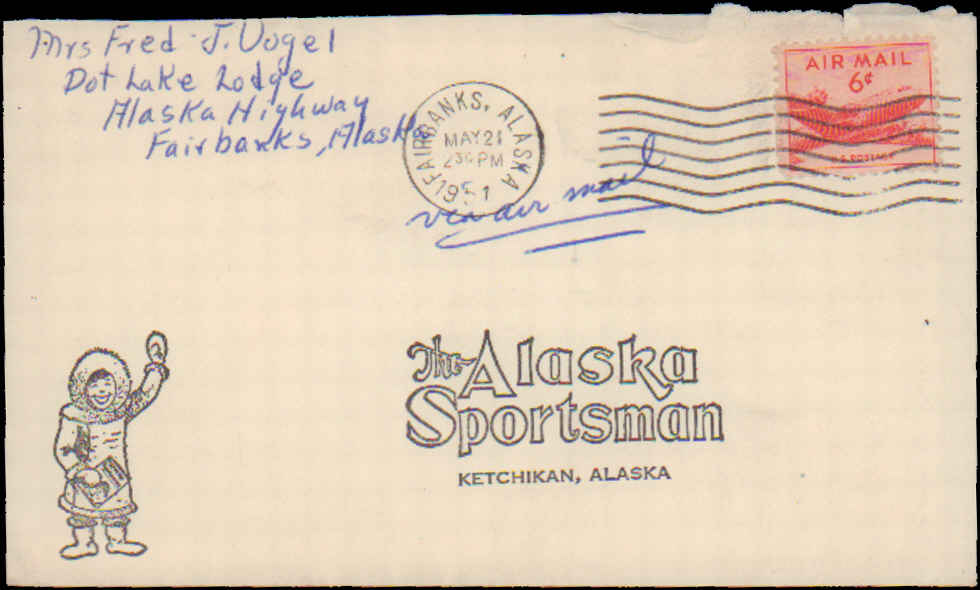 Mrs Fred J. Vogel
Dot Lake Lodge
Alaska Highway
Fairbanks, Alaska
FAIRBANKS, ALASKA
MAY 21
2 30 PM
1951
via air mail
AIR MAIL
6¢
U.S. POSTAGE
The Alaska
Sportsman
KETCHIKAN, ALASKA